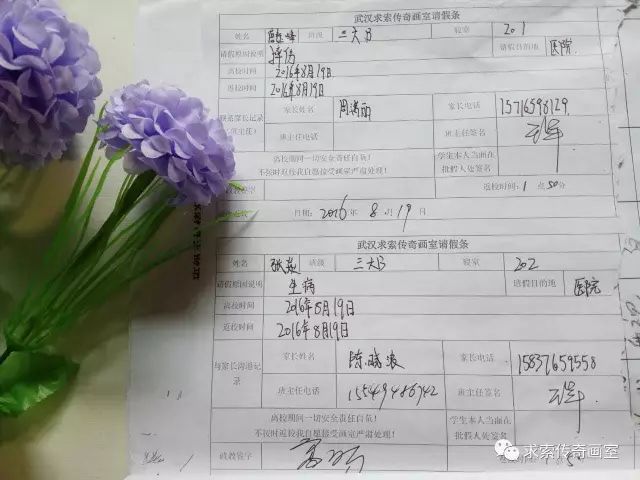 武汉求索传奇画室请假条
姓名 班级 三大B 寝室 201
请假原因说明 摔伤 请假目的地 医院
离校时间 2016年8月19日
返校时间 2016年8月19日
家长姓名 周满丽 家长电话 15716598129
班主任电话 班主任签名
离校期间一切安全责任自负! 学生本人当面在
不按时返校我自愿接受画室严肃处理! 批假人处签名
返校时间:1 点 50分
日期: 2016 年 8 月 19 日
武汉求索传奇画室请假条
姓名 班级 三大B 寝室 202
请假原因说明 生病 请假目的地 医院
离校时间 2016年8月19日
返校时间 2016年8月19日
与家长沟通记录 家长姓名 陈 家长电话 15837659558
班主任电话 15549486942 班主任签名
离校期间一切安全责任自负! 学生本人当面在
不按时返校我自愿接受画室严肃处理! 批假人处签名
政教签字
求索传奇画室